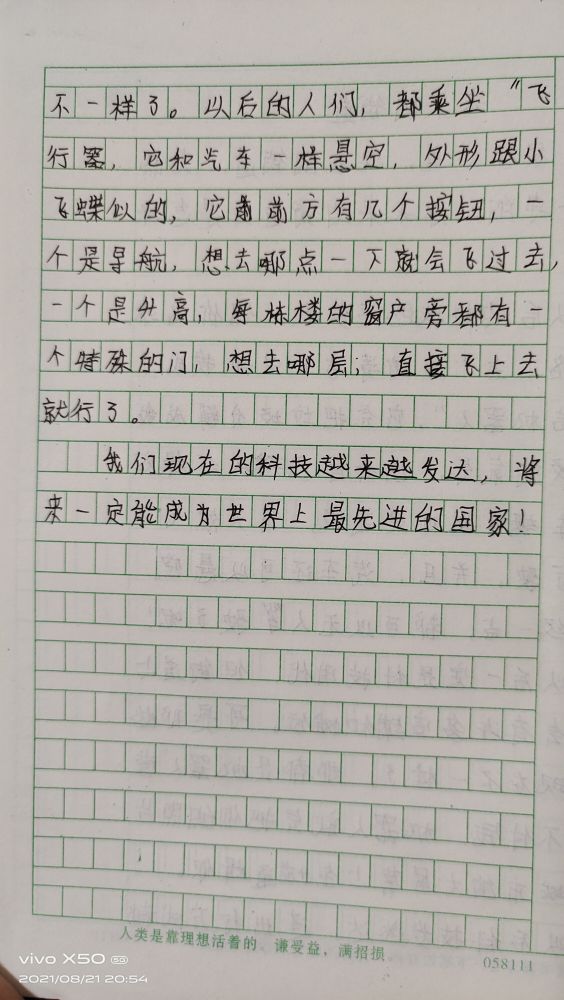 不一样了。以后的人们，都乘坐“飞
行器，它和汽车一样悬空，外形跟小
飞蝶似的，它前前方有几个按钮，一
个是导航，想去哪点一下就会飞过去，
一个是升高，每栋楼的窗户旁都有一
个特殊的门，想去哪层，直接飞上去
就行了。
我们现在的科技越来越发达，将
来一定能成为世界上最先进的国家！
人类是靠理想活着的。谦受益，满招损。
058111
vivo X50
2021/08/21 20:54